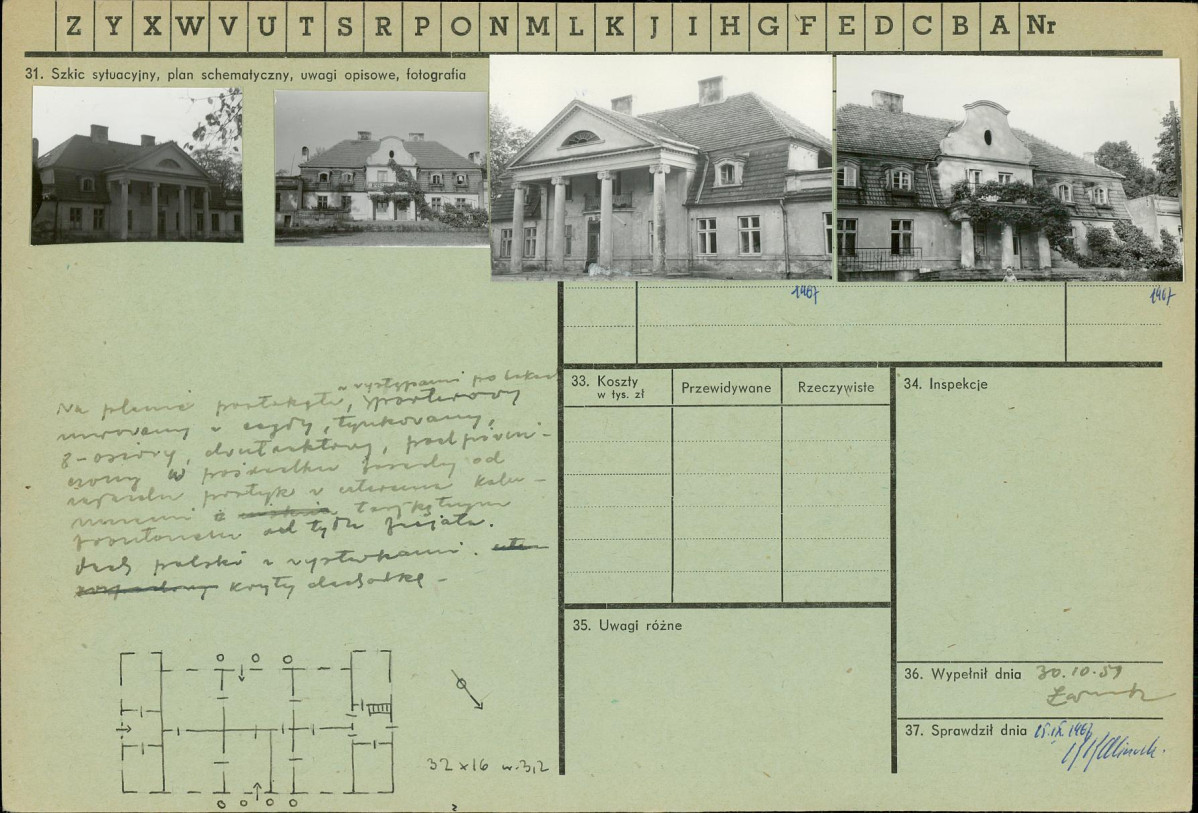 Z Y X W V U T S R P O N M L K J I H G F E D C B A Nr
31. Szkic sytuacyjny, plan schematyczny, uwagi opisowe, fotografia
1967
1967
z występami po bokach
Na planie prostokąta, parterowy
murowany z cegły, tynkowany,
8-osiowy, dwutraktowy, podpiwni-
czony w pośrodku fasady od
wjazdu portyk z czterema kolu-
mnami i trójkątnym
frontonem od tyłu
dach polski z wystawkami.
kryty dachówką -
32 x 16 w. 3,2
33. Koszty
w tys. zł
Przewidywane
Rzeczywiste
34. Inspekcje
35. Uwagi różne
36. Wypełnił dnia 30.10.59
37. Sprawdził dnia 15.IX.1967